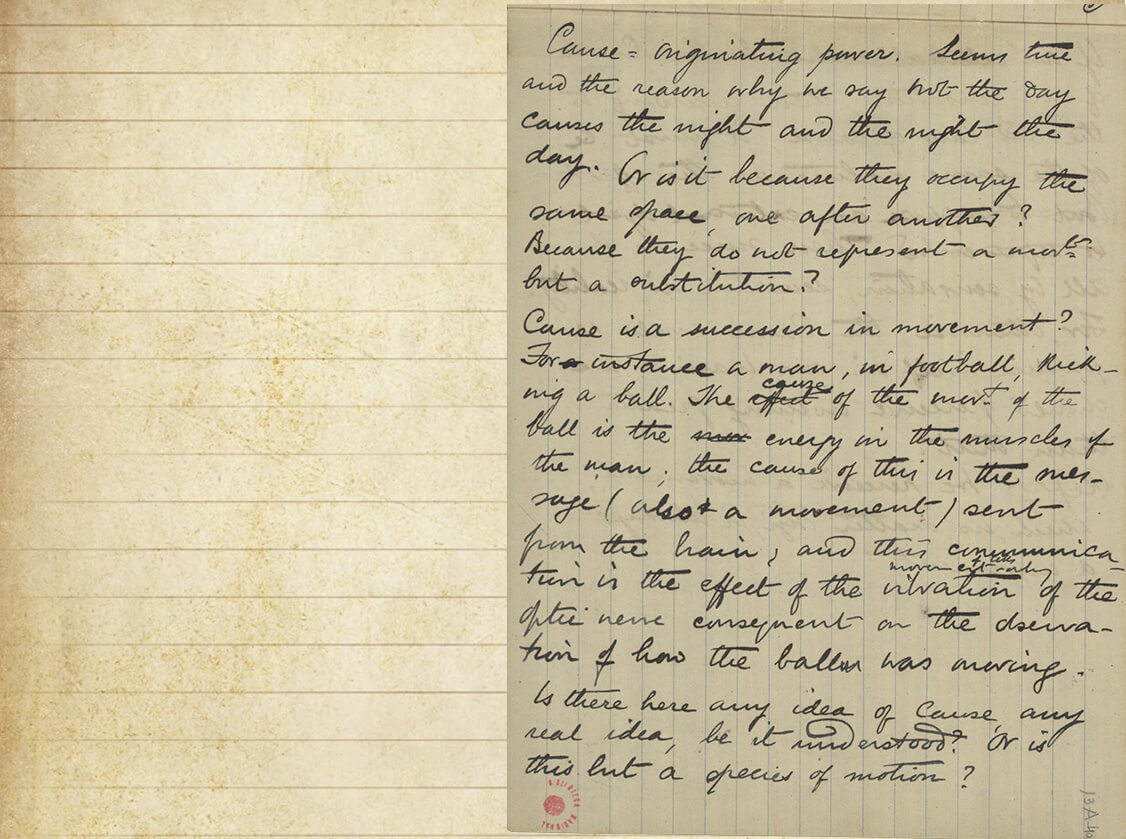 Cause = originating power. Seems true
and the reason why we say not the Day
causes the night and the night the
day. Or is it because they occupy the
same space, one after another?
Because they do not represent a movt.
but a substitution?
Cause is a succession in movement?
For instance a man, in football, kick-
ing a ball. The effect of the movt. of the
cause
ball is the energy in the muscles of
the man; the cause of this is the mes-
sage (also a movement) sent
from the brain; and this communica-
tion is the effect of the vibration of the
movement
optic nerve consequent on the observa-
tion of how the ball was moving.
Is there here any idea of Cause, any
real idea, be it understood? Or is
this but a species of motion?
13A